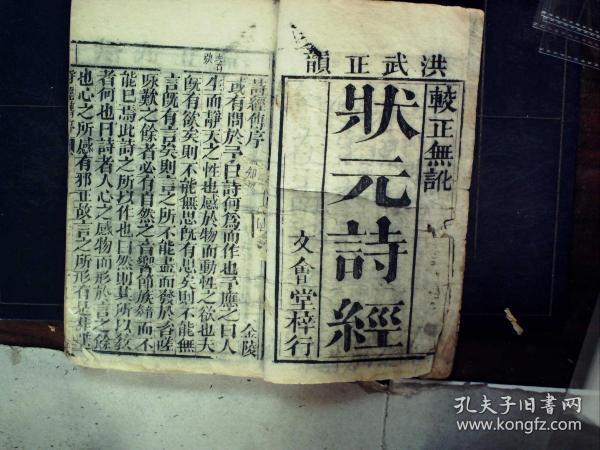 洪武正韻
較正無訛
狀元詩經
文會堂梓行
詩經傳序
金陵
或有問於予曰詩何為而作也予應之曰人
生而靜天之性也感於物而動性之欲也夫
既有欲矣則不能無思既有思矣則不能無
言既有言矣則言之所不能盡而發於咨嗟
咏歎之餘者必有自然之音響節族而不
能已焉此詩之所以作也曰然則其所以教
者何也曰詩者人心之感物而形於言之餘
也心之所感有邪正故言之所形有是非
孔夫子旧书网
www.kongfz.com